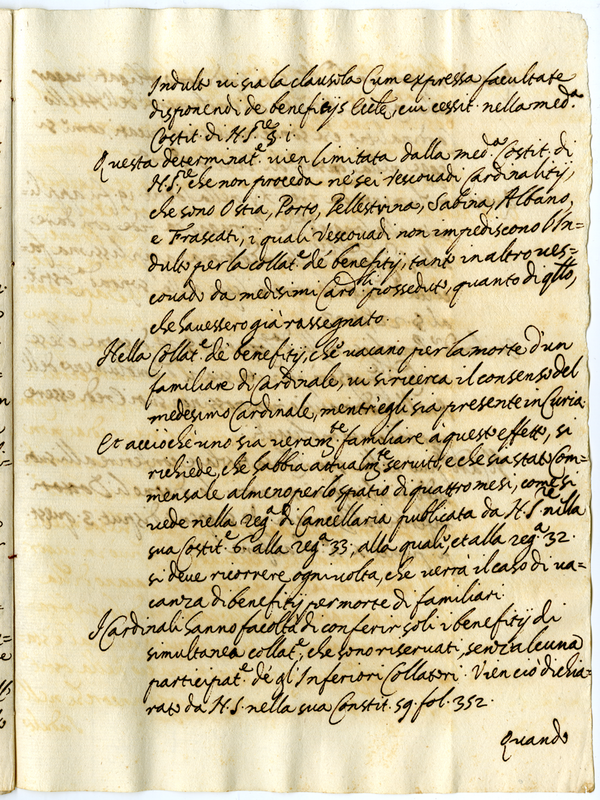 Indulto vi sia la clausola Cum expressa facultate
disponendi de beneficijs Eccle, cui cessit. nella med.a
Costit. di N. S.re §. i.
Questa determinat.e vien limitata dalla med.a Costit. di
N. S.re, che non proceda ne' sei Vescovadi Cardinalitij,
che sono Ostia, Porto, Pellestrina, Sabina, Albano,
e Frascati, i quali Vescovadi non impediscono l'In=
dulto per la collat.e de' benefitij, tanto in altro ves=
covado da medesimi Card.li posseduto, quanto di q͠llo,
che havessero già rassegnato.
Nella Collat.e de' benefitij, che vacano per la morte d'un
familiare di Cardinale, vi si ricerca il consenso del
medesimo Cardinale, mentr'egli sia presente in Curia.
Et acciò che uno sia veram.te familiare a questo effetto, si
richiede, che habbia attualm.te servito, e che sia stato Com=
mensale almeno per lo spatio di quattro mesi, come si
vede nella reg.a di Cancellaria publicata da N. S.re nella
sua Costit.e 6. alla reg.a 33, alla quale, et alla reg.a 32.
si deve ricorrere ogni volta, che verrà il caso di va=
canza di benefitij per morte di familiari.
I Cardinali hanno facoltà di conferir soli i benefitij di
simultanea collat.e, che sono riservati, senz'alcuna
participat.e de gl'Inferiori Collatori. Vien ciò dichia=
rato da N. S. nella sua Constit. 59. fol. 352.
Quando